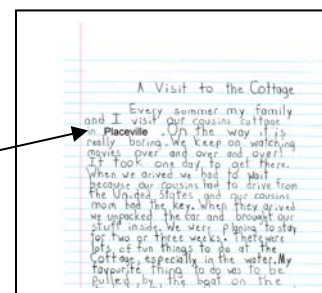 A Visit to the Cottage
Every summer my family
and I visit our cousins cottage
in Placeville . On the way it is
really boring. We keep on watching
movies over and over and over!
It took one day to get there.
When we arived we had to wait
because our cousins had to drive from
the United States and our cousins
mom had the key. When they arived
we unpacked the car and brought our
stuff inside. We were planing to stay
for two or three weeks. There were
lots of fun things to do at the
Cottage, especially in the water. My
favourite thing to do was to be
pulled, by the boat on the